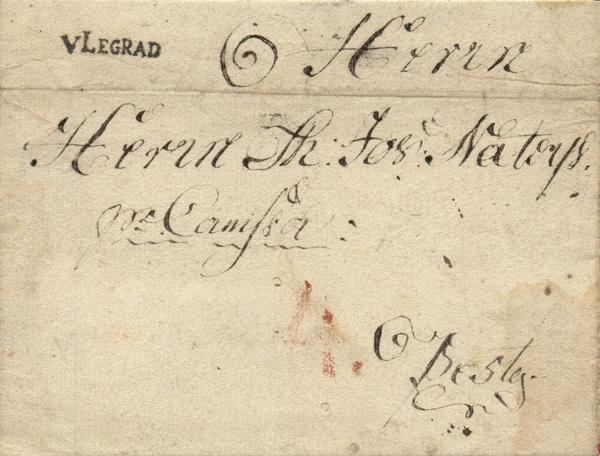 VLEGRAD
Herrn
Herrn Th: Jos: Natorp.
pr Canisa
4.
Pesth.